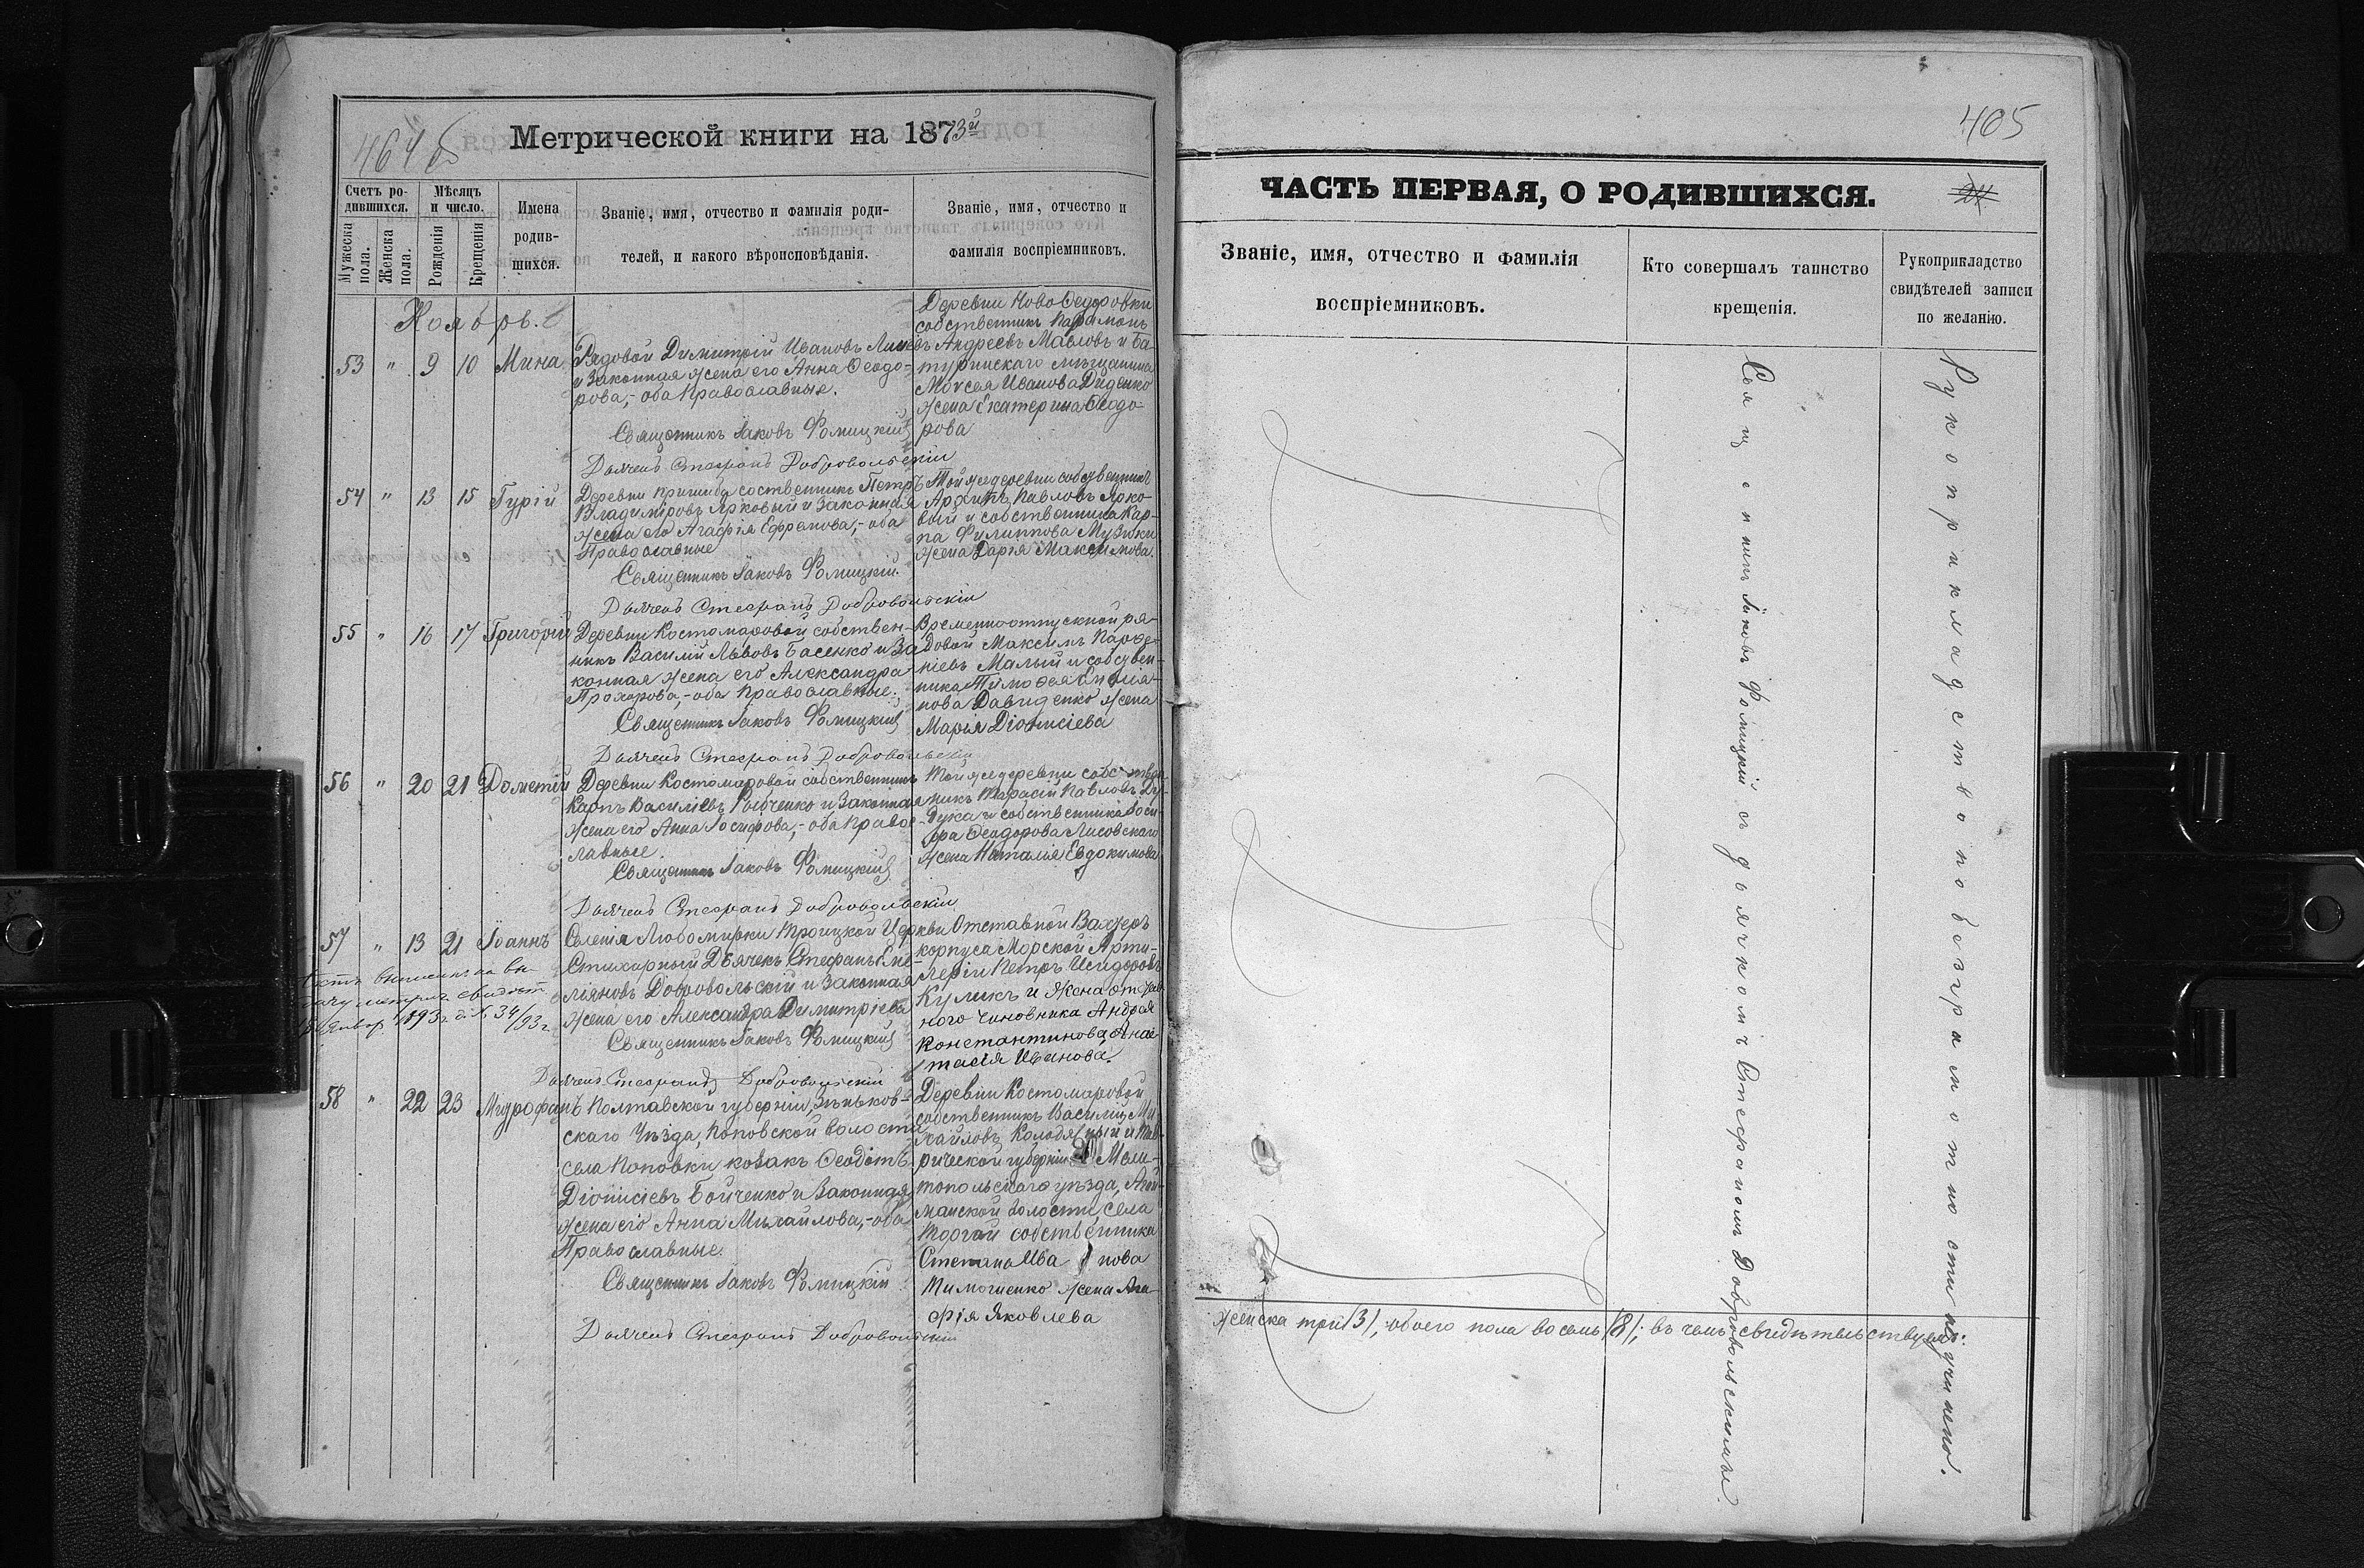 464 б
Метрической книги на 1873й
Счетъ родившихся.
Мѣсяцъ и число.
Мужеска пола.
Женска пола.
Рожденія
Крещенія
Имена родившихся.
Званіе, имя, отчество и фамилія родителей, и какого вѣроисповѣданія.
Званіе, имя, отчество и фамилія воспріемниковъ.
Ноябрь.
53 " 9 10 Мина
Рядовой Димитрій Ивановъ
и законная жена его Анна Ѳеодо-
рова,- оба Православные.
Священникъ Іаковъ Фомицкій
Дьячекъ Стефанъ Добровольскій
Деревни НовоѲедоровки
собственникъ Парамонъ
Андреевъ Масловъ и Ба-
туринскаго мѣщанина
Моѵсея Иванова Диденко
жена Екатерина Ѳеодо-
рова
54 " 13 15 Гурій
Деревни Пришиба собственникъ Петръ
Владиміровъ Ярковый и законная
жена его Агафія Ефремова,- оба
Православные
Священникъ Іаковъ Фомицкій.
Дьячекъ Стефанъ Добровольскій
Той же деревни собственникъ
Архипъ Павловъ Ярко-
вый и собственника Кар-
па Филиппова Музыки
жена Дарія Максимова.
55 " 16 17 Григорій
Деревни Костомаровой собствен-
никъ Василій Львовъ Басенко и за-
конная жена его Александра
Прохорова,- оба Православные.
Священникъ Іаковъ Фомицкій
Дьячекъ Стефанъ Добровольскій
Временноотпускной ря-
довой Максимъ Парѳе-
ніевъ Малый и собствен-
ника Тимоѳея
Давиденко жена
Марія Діонисіева
56 " 20 21 Дометій
Деревни Костомаровой собственникъ
Карпъ Василіевъ Рябченко и законная
жена его Анна Іосифова,- оба Правос-
лавные.
Священникъ Іаковъ Фомицкій
Дьячекъ Стефанъ Добровольскій
Той же деревни собствен-
никъ Тарасій Павловъ
и собственника Іоси-
фа Ѳеодорова Лисовскаго
жена Наталія Евдокимова
57 " 13 21 Іоаннъ
Селенія Любомирки Троицкой Церкви
Стихарный Дьячекъ Стефанъ Еме-
ліяновъ Добровольскій и законная
жена его Александра Димитріева
Священникъ Іаковъ Фомицкій
Дьячекъ Стефанъ Добровольскій
Отставной Вахтеръ
корпуса Морской Арти-
леріи Петръ Исидоровъ
Куликъ и жена
чиновника Андрея
Константинова Анас-
тасія Иванова.
58 " 22 23 Митрофанъ
Полтавской губерніи, Зѣньков-
скаго Уѣзда, Поповской волости
села Поповки козакъ Ѳеодотъ
Діонисіевъ Бойченко и законная
жена его Анна Михайлова,- оба
Православные.
Священникъ Іаковъ Фомицкій
Дьячекъ Стефанъ Добровольскій
Деревни Костомаровой
собственникъ Василій Ми-
хайловъ Колодяжный и Тав-
рической губерніи Мели-
топольскаго уѣзда, Агай-
манской волости, села
Торгай собственника
Степана Иванова
Тимошенко жена Ага-
фія Яковлева
405
ЧАСТЬ ПЕРВАЯ, О РОДИВШИХСЯ.
Званіе, имя, отчество и фамилія воспріемниковъ.
Кто совершалъ таинство крещенія.
Рукоприкладство свидѣтелей записи по желанію.
Священникъ Іаковъ Фомицкій съ дьячкомъ Стефаномъ Добровольскимъ.
Рукоприкладство по безграмотности не учинено.
женска три /3/, обоего пола восемь /8/; въ чемъ свидѣтельствуемъ: